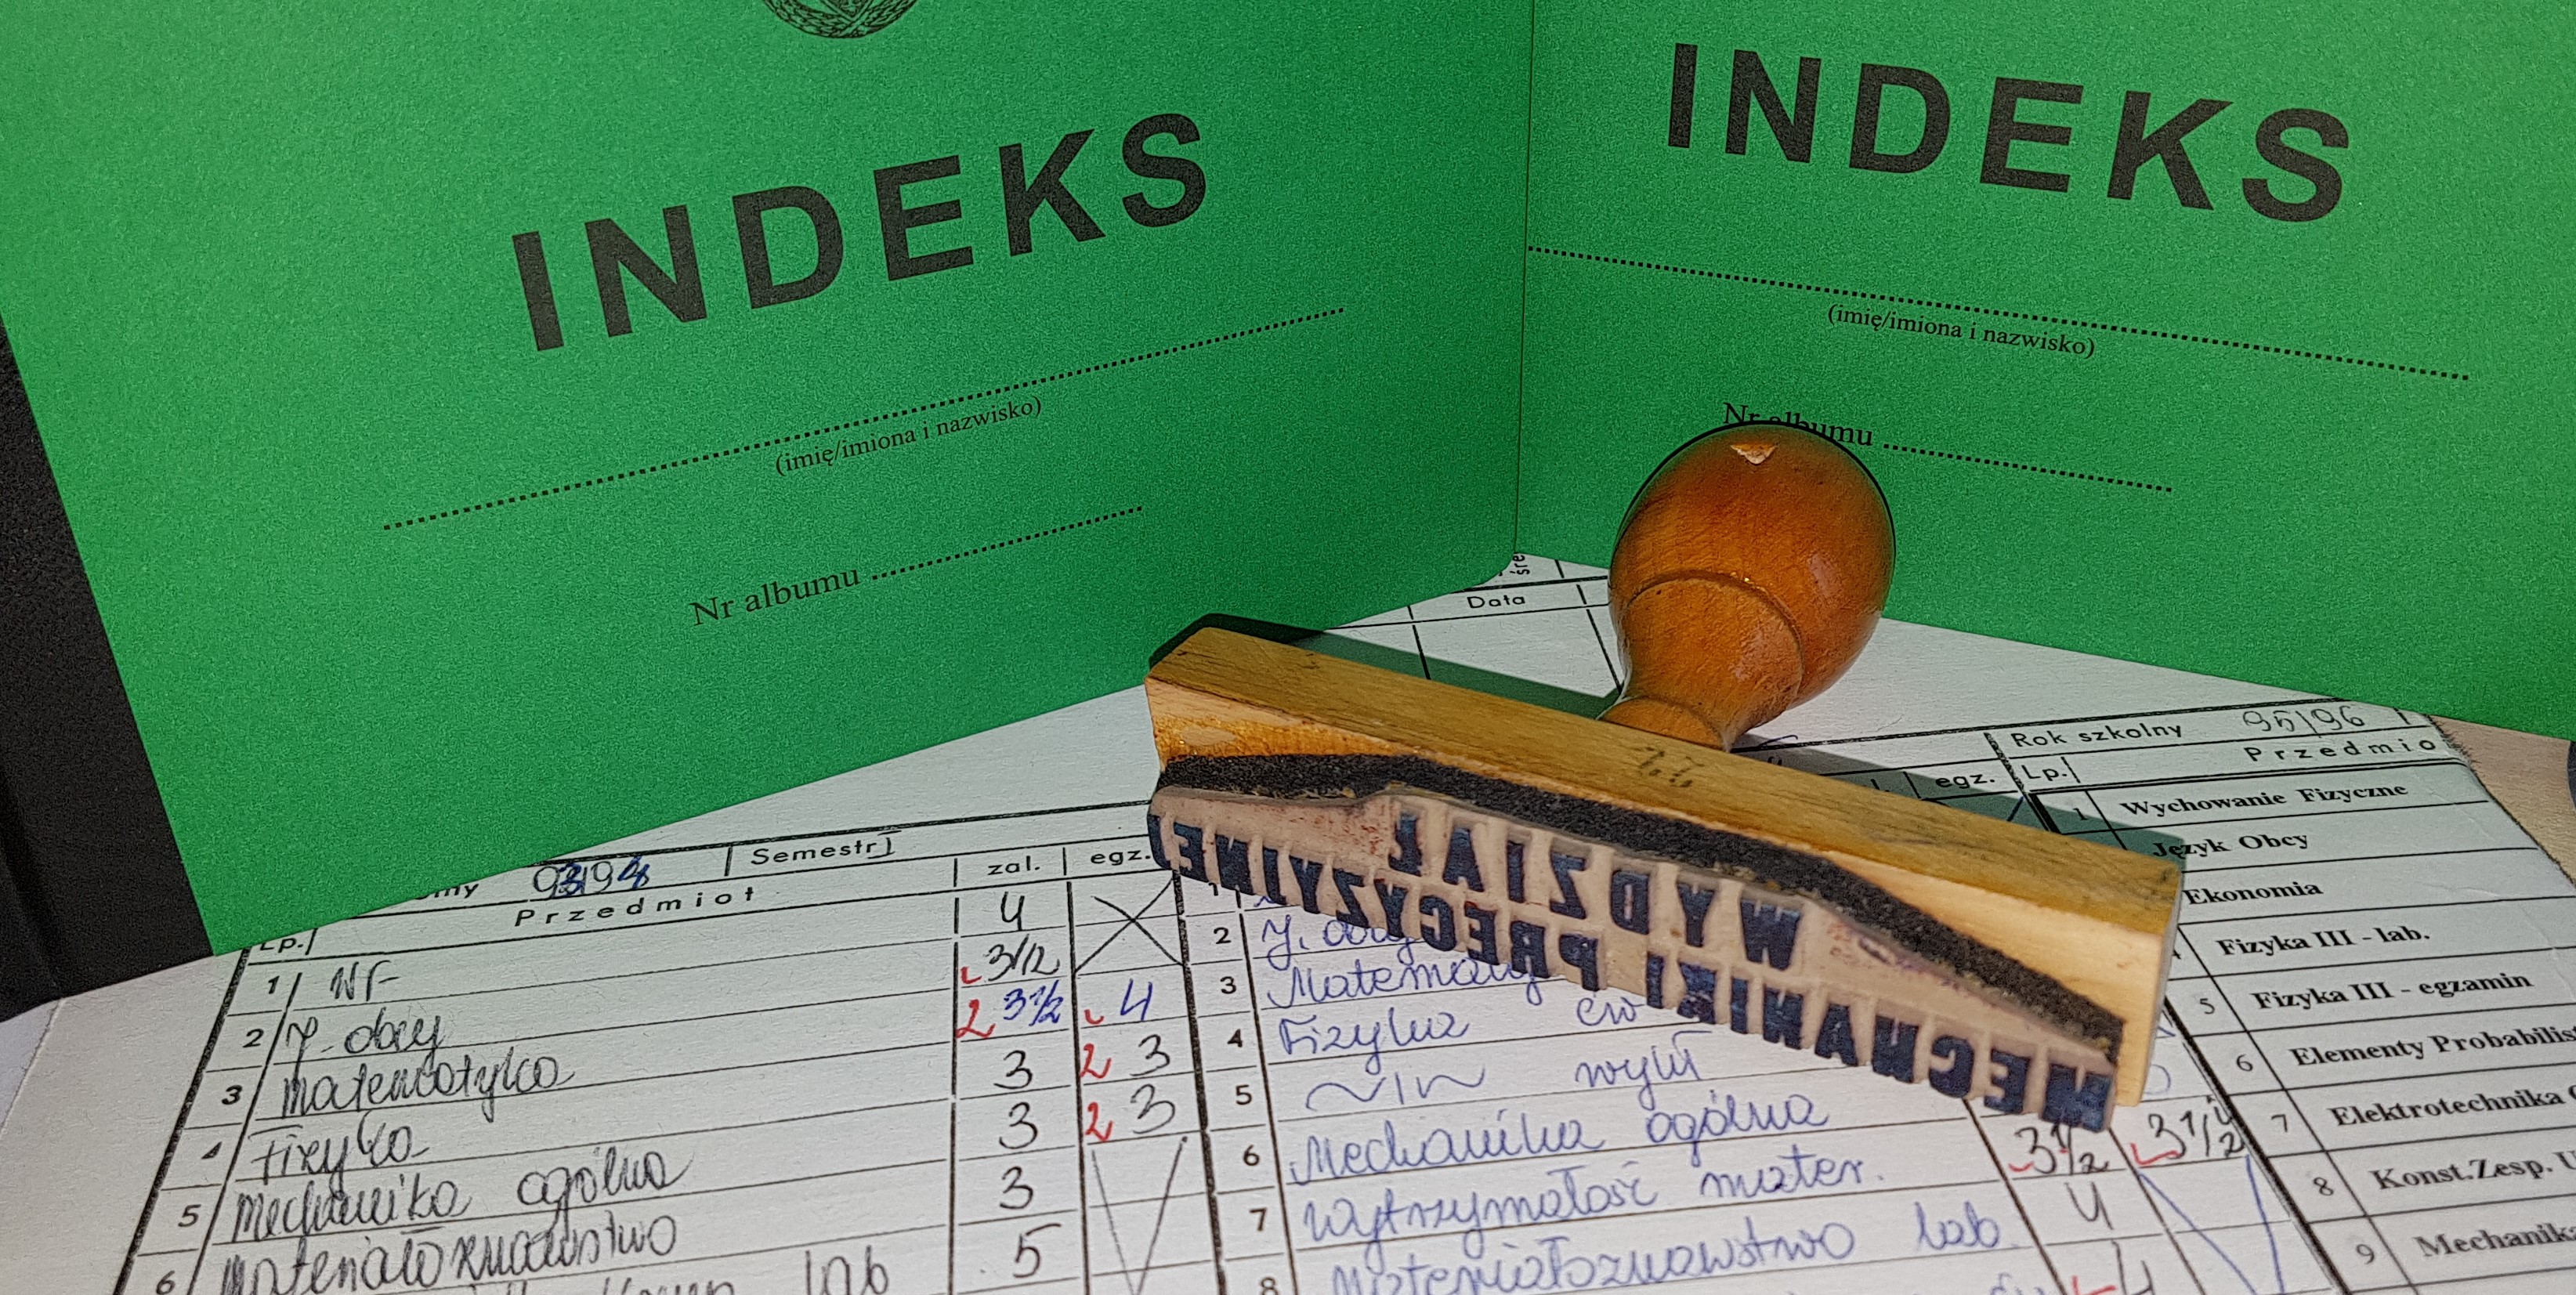 INDEKS
(imię/imiona i nazwisko)
Nr albumu
INDEKS
(imię/imiona i nazwisko)
Nr albumu
Data
WYDZIAŁ
MECHANIKI PRECYZYJNEJ
93/94 Semestr I
Lp. Przedmiot zal. egz.
1 WF 4
2 J. obcy 3 1/2
3 matematyka 2 3 1/2 4
4 Fizyka 3 2 3
5 Mechanika ogólna 3 2 3
6 Materiałoznawstwo 3
lab 5
egz.
1
2 J.
3
4 Fizyka ćw
5 wykł
6 Mechanika ogólna 3 1/2 3 1/2
7 Wytrzymałość mater. 4
8 Materiałoznawstwo lab 4
Rok szkolny 95/96
Lp. Przedmio
1 Wychowanie Fizyczne
Język Obcy
Ekonomia
Fizyka III - lab.
5 Fizyka III - egzamin
6 Elementy Probabilis
7 Elektrotechnika
8 Konst.Zesp. U
9 Mechanika